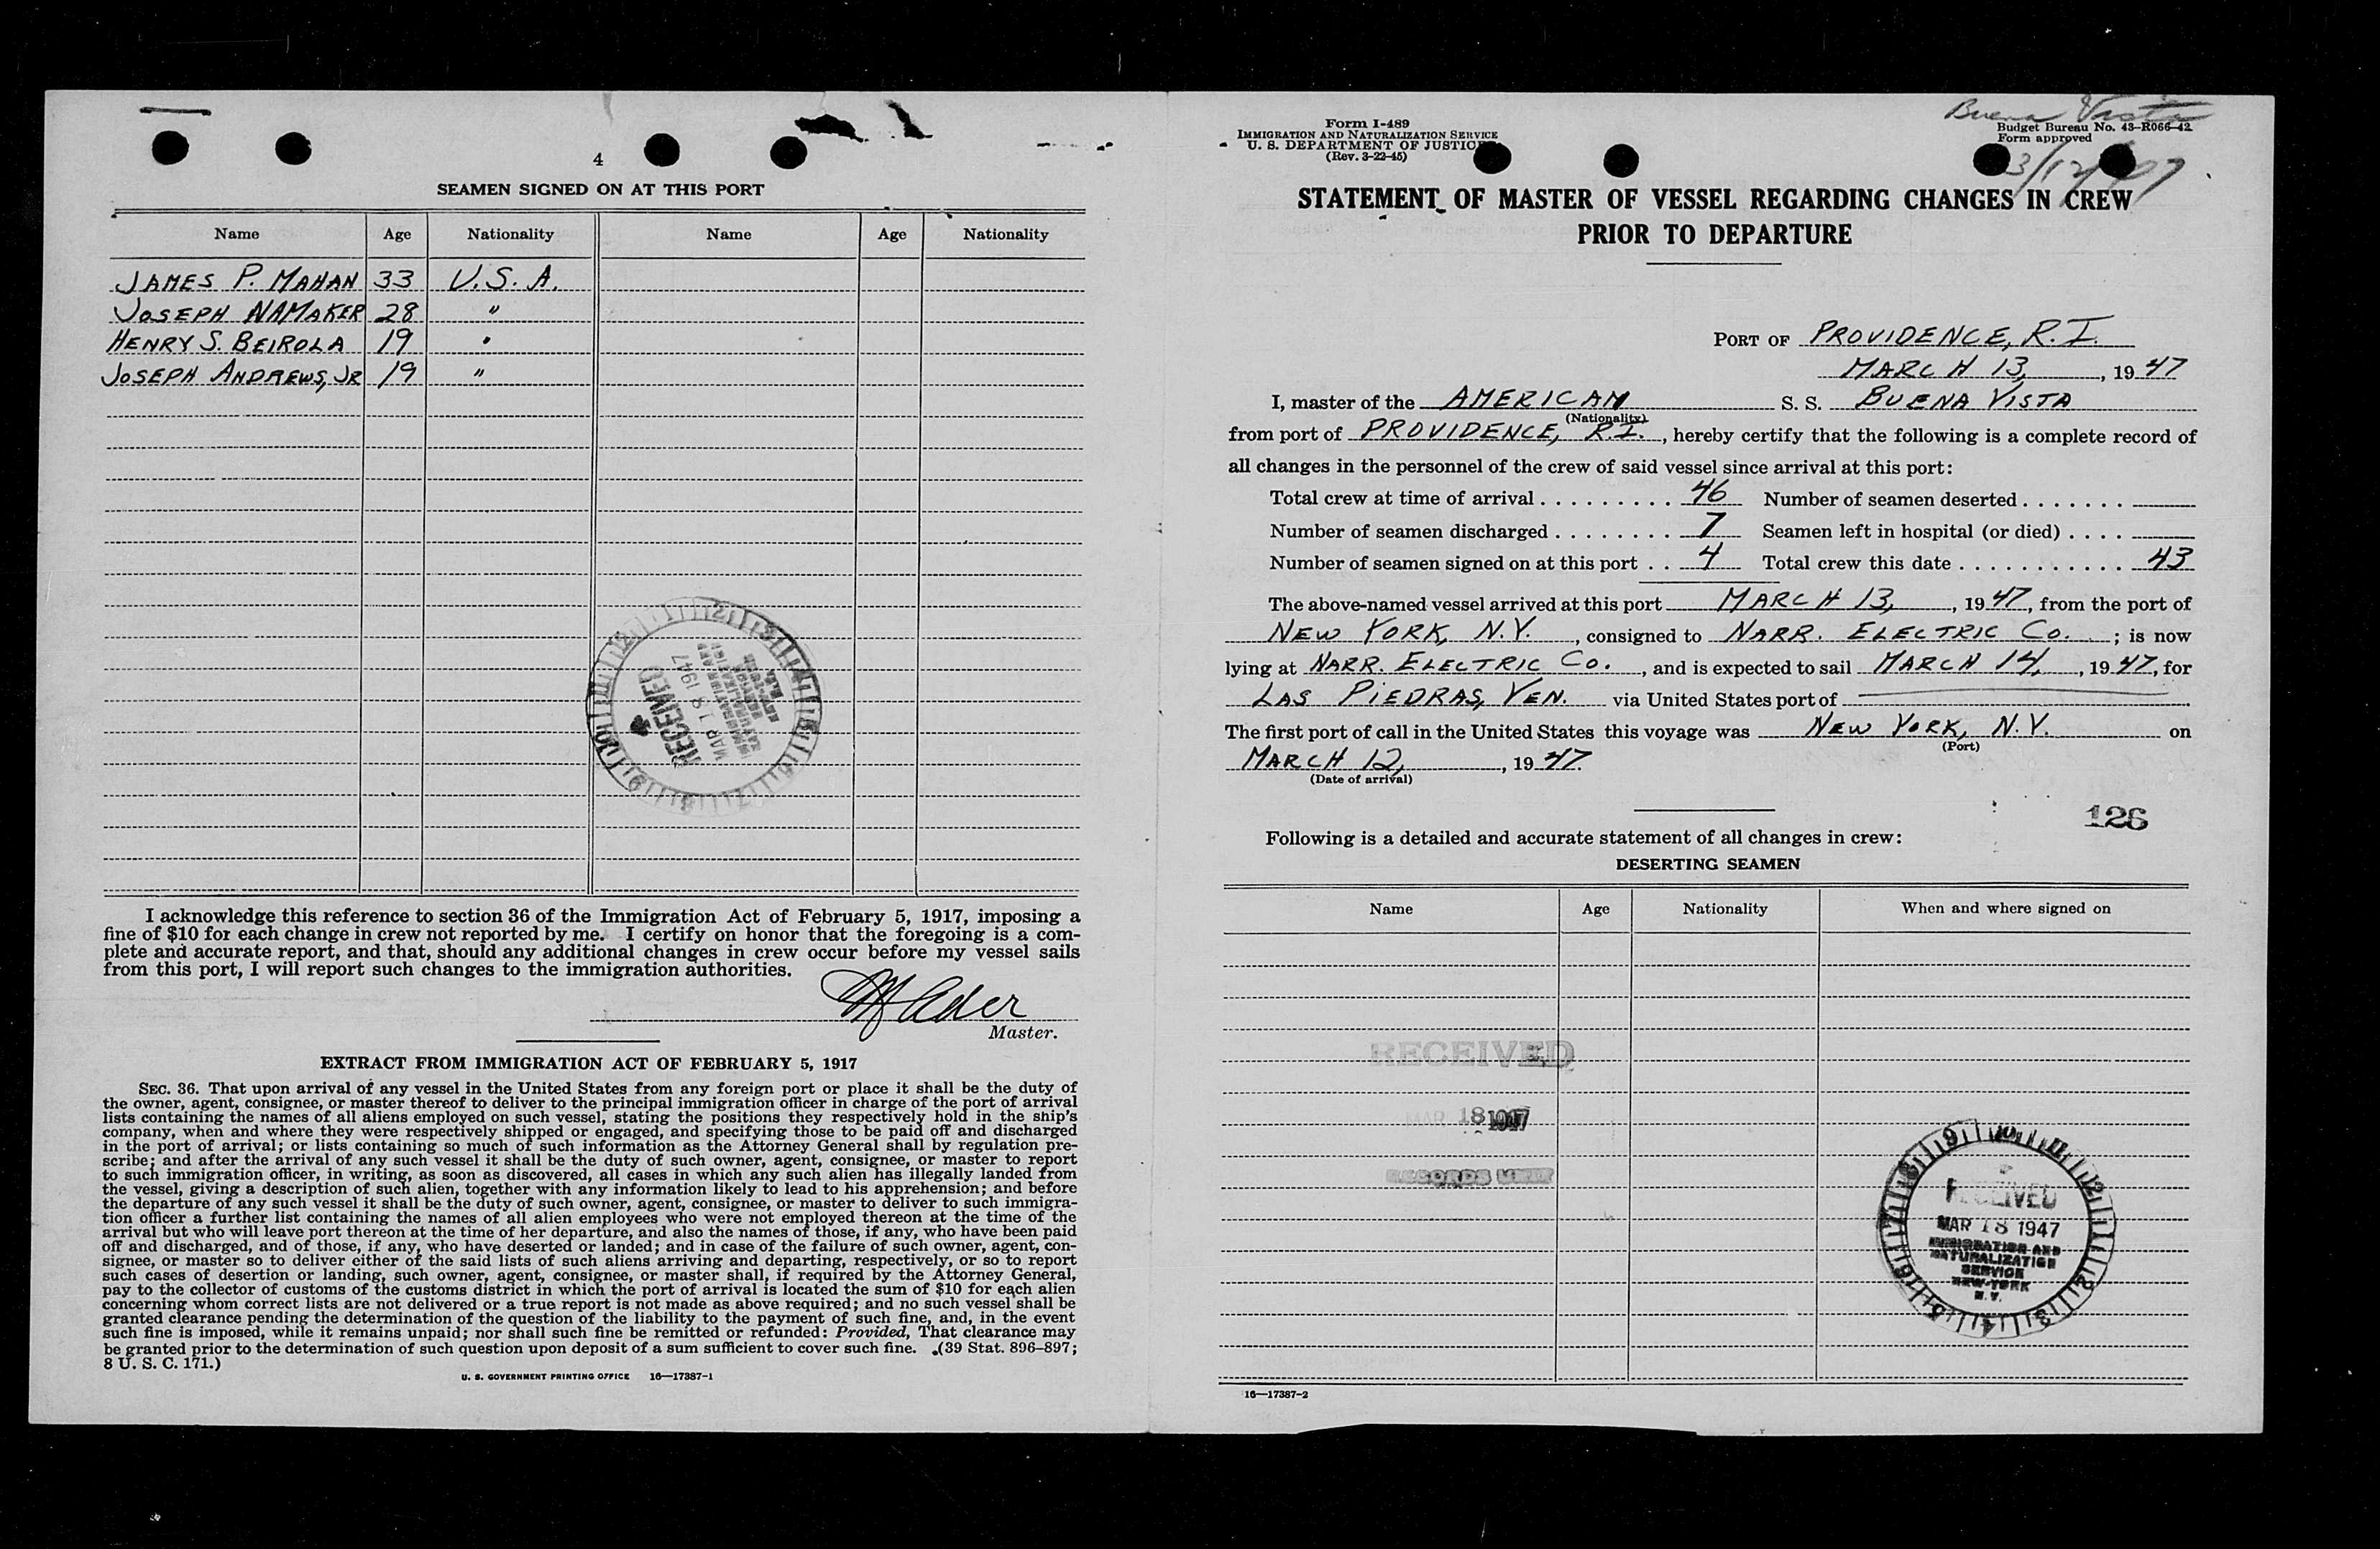 4
SEAMEN SIGNED ON AT THIS PORT
Name Age Nationality Name Age Nationality
JAMES P. MAHAN 33 U.S.A.
JOSEPH NAMAKER 28 "
HENRY S. BEIROLA 19 "
JOSEPH ANDREWS, JR 19 "
RECEIVED
MAR 18 1947
I acknowledge this reference to section 36 of the Immigration Act of February 5, 1917, imposing a
fine of $10 for each change in crew not reported by me. I certify on honor that the foregoing is a com-
plete and accurate report, and that, should any additional changes in crew occur before my vessel sails
from this port, I will report such changes to the immigration authorities.
Master.
EXTRACT FROM IMMIGRATION ACT OF FEBRUARY 5, 1917
SEC. 36. That upon arrival of any vessel in the United States from any foreign port or place it shall be the duty of
the owner, agent, consignee, or master thereof to deliver to the principal immigration officer in charge of the port of arrival
lists containing the names of all aliens employed on such vessel, stating the positions they respectively hold in the ship's
company, when and where they were respectively shipped or engaged, and specifying those to be paid off and discharged
in the port of arrival; or lists containing so much of such information as the Attorney General shall by regulation pre-
scribe; and after the arrival of any such vessel it shall be the duty of such owner, agent, consignee, or master to report
to such immigration officer, in writing, as soon as discovered, all cases in which any such alien has illegally landed from
the vessel, giving a description of such alien, together with any information likely to lead to his apprehension; and before
the departure of any such vessel it shall be the duty of such owner, agent, consignee, or master to deliver to such immigra-
tion officer a further list containing the names of all alien employees who were not employed thereon at the time of the
arrival but who will leave port thereon at the time of her departure, and also the names of those, if any, who have been paid
off and discharged, and of those, if any, who have deserted or landed; and in case of the failure of such owner, agent, con-
signee, or master so to deliver either of the said lists of such aliens arriving and departing, respectively, or so to report
such cases of desertion or landing, such owner, agent, consignee, or master shall, if required by the Attorney General,
pay to the collector of customs of the customs district in which the port of arrival is located the sum of $10 for each alien
concerning whom correct lists are not delivered or a true report is not made as above required; and no such vessel shall be
granted clearance pending the determination of the question of the liability to the payment of such fine, and, in the event
such fine is imposed, while it remains unpaid; nor shall such fine be remitted or refunded: Provided, That clearance may
be granted prior to the determination of such question upon deposit of a sum sufficient to cover such fine. (39 Stat. 896–897;
8 U. S. C. 171.)
U. S. GOVERNMENT PRINTING OFFICE 16—17387-1
Buena Vista
3/12/47
Form I-489
IMMIGRATION AND NATURALIZATION SERVICE
U. S. DEPARTMENT OF JUSTICE
(Rev. 3-22-45)
Budget Bureau No. 43-R066-42
Form approved
STATEMENT OF MASTER OF VESSEL REGARDING CHANGES IN CREW
PRIOR TO DEPARTURE
PORT OF PROVIDENCE, R.I.
MARCH 13, , 19 47
I, master of the AMERICAN S. S. BUENA VISTA
(Nationality)
from port of PROVIDENCE, R.I. , hereby certify that the following is a complete record of
all changes in the personnel of the crew of said vessel since arrival at this port:
Total crew at time of arrival . . . . . . . . . 46 Number of seamen deserted . . . . . . .
Number of seamen discharged . . . . . . . . 7 Seamen left in hospital (or died) . . . .
Number of seamen signed on at this port . . 4 Total crew this date . . . . . . . . . . . 43
The above-named vessel arrived at this port MARCH 13, , 19 47, from the port of
NEW YORK, N.Y. , consigned to NARR. ELECTRIC CO. ; is now
lying at NARR. ELECTRIC CO. , and is expected to sail MARCH 14, , 19 47, for
LAS PIEDRAS, VEN. via United States port of
The first port of call in the United States this voyage was NEW YORK, N.Y. on
(Port)
MARCH 12, , 19 47.
(Date of arrival)
126
Following is a detailed and accurate statement of all changes in crew:
DESERTING SEAMEN
Name Age Nationality When and where signed on
RECEIVED
MAR 18 1947
RECORDS UNIT
RECEIVED
MAR 18 1947
IMMIGRATION AND
NATURALIZATION
SERVICE
NEW-YORK
N. Y.
16—17387-2